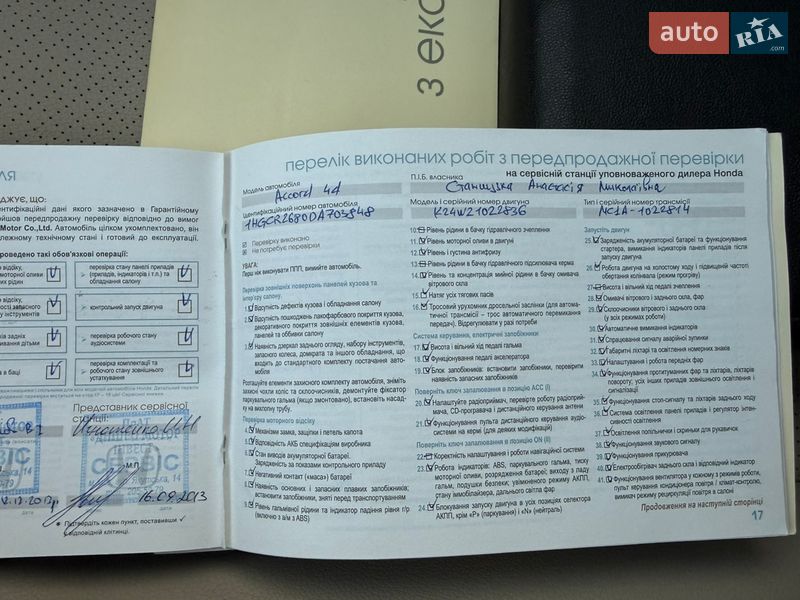 auto RIA .com
з еко
перелік виконаних робіт з передпродажної перевірки
на сервісній станції уповноваженого дилера Honda
Модель автомобіля
Accord 4d
П.І.Б. власника
Ідентифікаційний номер автомобіля
1HGCR2680DA703848
Модель і серійний номер двигуна
K24W21022836
Тип і серійний номер трансмісії
NC1A-1022814
Перевірку виконано
Не потребує перевірки
УВАГА:
Перш ніж виконувати ППП, вимийте автомобіль.
Перевірка зовнішніх поверхонь панелей кузова та інтер'єру салону.
1. Відсутність дефектів кузова і обладнання салону
2. Відсутність пошкоджень лакофарбового покриття кузова,
декоративного покриття зовнішніх елементів кузова,
панелей та оббивки салону
3. Наявність держал заднього огляду, набору інструментів,
запасного колеса, домкрата та іншого обладнання, що
входять до стандартного комплекту постачання автомобіля.
Розпакуйте елементи захисного комплекту автомобіля, зніміть
захисні чохли коліс та склоочисників, демонтуйте фіксатор
паркувального гальма (якщо змонтовані), встановіть насадку
на вихлопну трубу.
Перевірка моторного відсіку
4. Механізми, замки, защіпки і петель капота
5. Відповідність АКБ специфікаціям виробника
6. Стан виводів акумуляторної батареї.
Заряджання за показами контрольного приладу
7. Негативний контакт («маса») батареї
8. Наявність основних і запасних плавких запобіжників;
встановити запобіжники, зняті перед транспортування
9. Рівень гальмівної рідини та індикатор падіння рівня г/р
(включно з а/м з ABS)
10. Рівень рідини в бачку гідравлічного зчеплення
11. Рівень моторної оливи в двигуні
12. Рівень і густина антифризу
13. Рівень рідини в бачку гідравлічного підсилювача керма
14. Рівень та концентрація мийної рідини в бачку омивача
вітрового скла
15. Натяг усіх тягових пасів
16. Тросовий урухомник дросельної заслінки (для автома-
тичної трансмісії – трос автоматичного перемикання
передач). Відрегулювати у разі потреби
Система керування, електричні запобіжники
17. Висота і вільний хід педалі гальма
18. Функціонування педалі акселератора
19. Блок запобіжників: встановити запобіжники, перевірити
наявність запасних запобіжників
Поверніть ключ запалювання в позицію ACC (I)
20. Налаштувати радіоприймач, перевірте роботу радіоприймача,
CD-програвача і дистанційного керування антени
21. Функціонування пульта дистанційного керування аудіо-
системи на кермі (для деяких модифікацій)
Поверніть ключ запалювання в позицію ON (II)
22. Коректність налаштування і роботи навігаційної системи
23. Робота індикаторів: ABS, паркувального гальма, тиску
моторної оливи, розрядження батареї; виходу з ладу
гальм, подушки безпеки; увімкненого режиму АКПП,
стану імобілайзера, дальнього світла фар
24. Блокування запуску двигуна в усіх позиціях селектора
АКПП, крім «P» (паркування) і «N» (нейтраль)
Запустіть двигун
25. Зарядження акумуляторної батареї та функціонування
стартера, вимикання індикаторів на панелі приладів після
запуску двигуна
26. Робота двигуна на холостому ходу і підвищеній частоті
обертання колінвала (режим прогріву)
27. Висота і вільний хід педалі зчеплення
28. Омивачі вітрового і заднього скла, фар
29. Склоочисники вітрового і заднього скла
(у всіх режимах роботи)
30. Автоматичне вимикання індикаторів
31. Спрацювання сигналу аварійної зупинки
32. Габаритні ліхтарі та освітлення номерних знаків
33. Налаштування і робота передніх фар
34. Функціонування протитуманних фар та ліхтарів, ліхтарів
повороту, усіх інших приладів зовнішнього освітлення і
сигналізації
35. Функціонування стоп-сигналу та ліхтарів заднього ходу
36. Система освітлення панелі приладів і регулятор інтен-
сивності освітлення
37. Освітлення попільнички і скриньки для рукавичок
38. Функціонування звукового сигналу
39. Функціонування прикурювача
40. Електрообігрівач заднього скла і відповідний індикатор
41. Функціонування вентилятора у кожному з режимів роботи,
пульт керування кондиціонера повітря / клімат-контролю,
вимикач режиму рециркуляції повітря в салоні
Продовження на наступній сторінці
17
ДЖУЄ, ЩО:
Motor Co.,Ltd. Автомобіль цілком укомплектовано, він
лежному технічному стані і готовий до експлуатації.
роведено такі обов'язкові операції:
перевірка стану панелі приладів
(приладів, індикаторів і т.п.) та
обладнання салону
контрольний запуск двигуна
перевірка робочого стану
аудіосистеми
перевірка комплектації та
робочого стану зовнішнього
устаткування
Представник сервісної
станції:
М.П.
16.09.2013
дата
дата
* Підтвердіть кожен пункт, поставивши ✓
у відповідній клітинці.